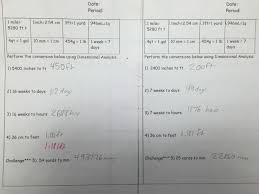 Date:
Period:
1 mile= 5280 ft
1 inch= 2.54 cm
3ft=1 yard
946mL=1q
4qt = 1 gal
10 mm = 1 cm
454g = 1 lb
1 week = 7 days
Perform the conversions below using Dimensional Analysis.
1) 5400 inches to ft 450ft
2) 16 weeks to days 112 day
3) 16 weeks to hours
4) 36 cm to feet 1.18ft
Challenge*** 5) 54 yards to mm
Date:
Period:
1 mile= 5280 ft
1 inch= 2.54 cm
3ft=1 yard
946mL=1q
4qt = 1 gal
10 mm = 1 cm
454g = 1 lb
1 week = 7 days
Perform the conversions below using Dimensional Analysis.
1) 2400 inches to ft 200ft
2) 7 weeks to days 49 day
3) 7 weeks to hours 1176 hour
4) 36 cm to feet 1.181 ft
Challenge*** 5) 25 yards to mm 22860